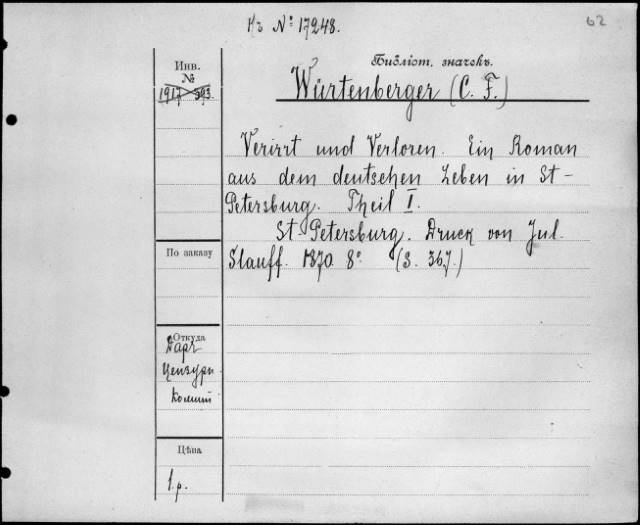 Къ № 17248.
62
Библіот. значекъ.
Инв.
№
1917 593.
Würtenberger (C. F.)
Verirrt und Verloren. Ein Roman
aus dem deutschen Leben in St-
Petersburg. Theil I.
St. Petersburg. Druck von Jul.
Stauff. 1870. 8° (S. 367.)
По заказу
Откуда
Даръ
Цензурн.
Комит
Цѣна
1.р.